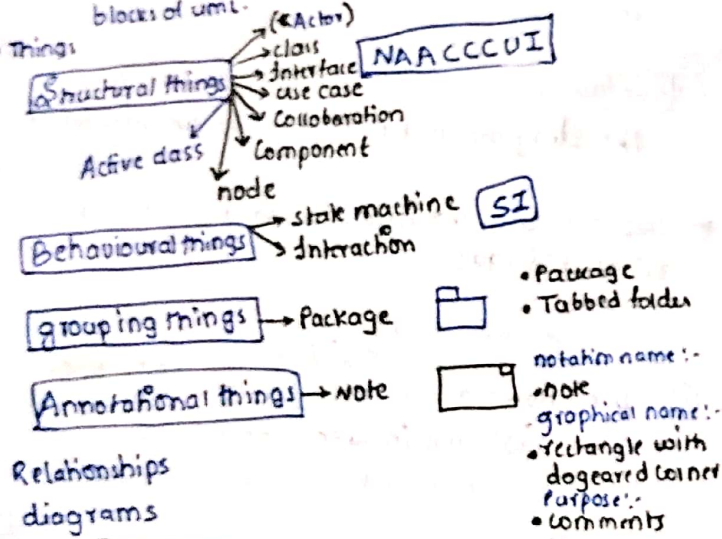 blocks of uml.
Things
Structural things
(Actor)
class
Interface
use case
Collobaration
Component
node
Active class
NAACCCUI
Behavioural things
state machine
Interaction
SI
grouping things
Package
• Package
• Tabbed folder
Annotational things
Note
notation name :-
• note
graphical name :-
• rectangle with
dogeared corner
Purpose :-
• comments
Relationships
diagrams